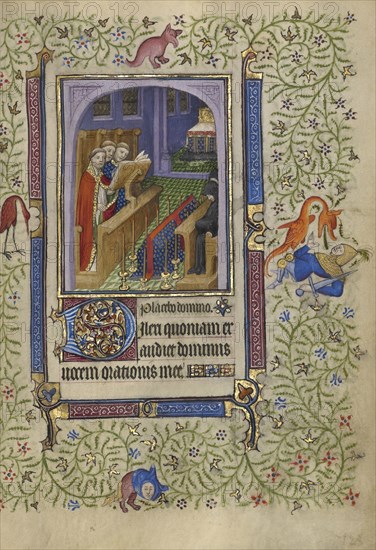 Placebo domino.
Dilexi quoniam ex
audiet dominus
vocem orationis mee.